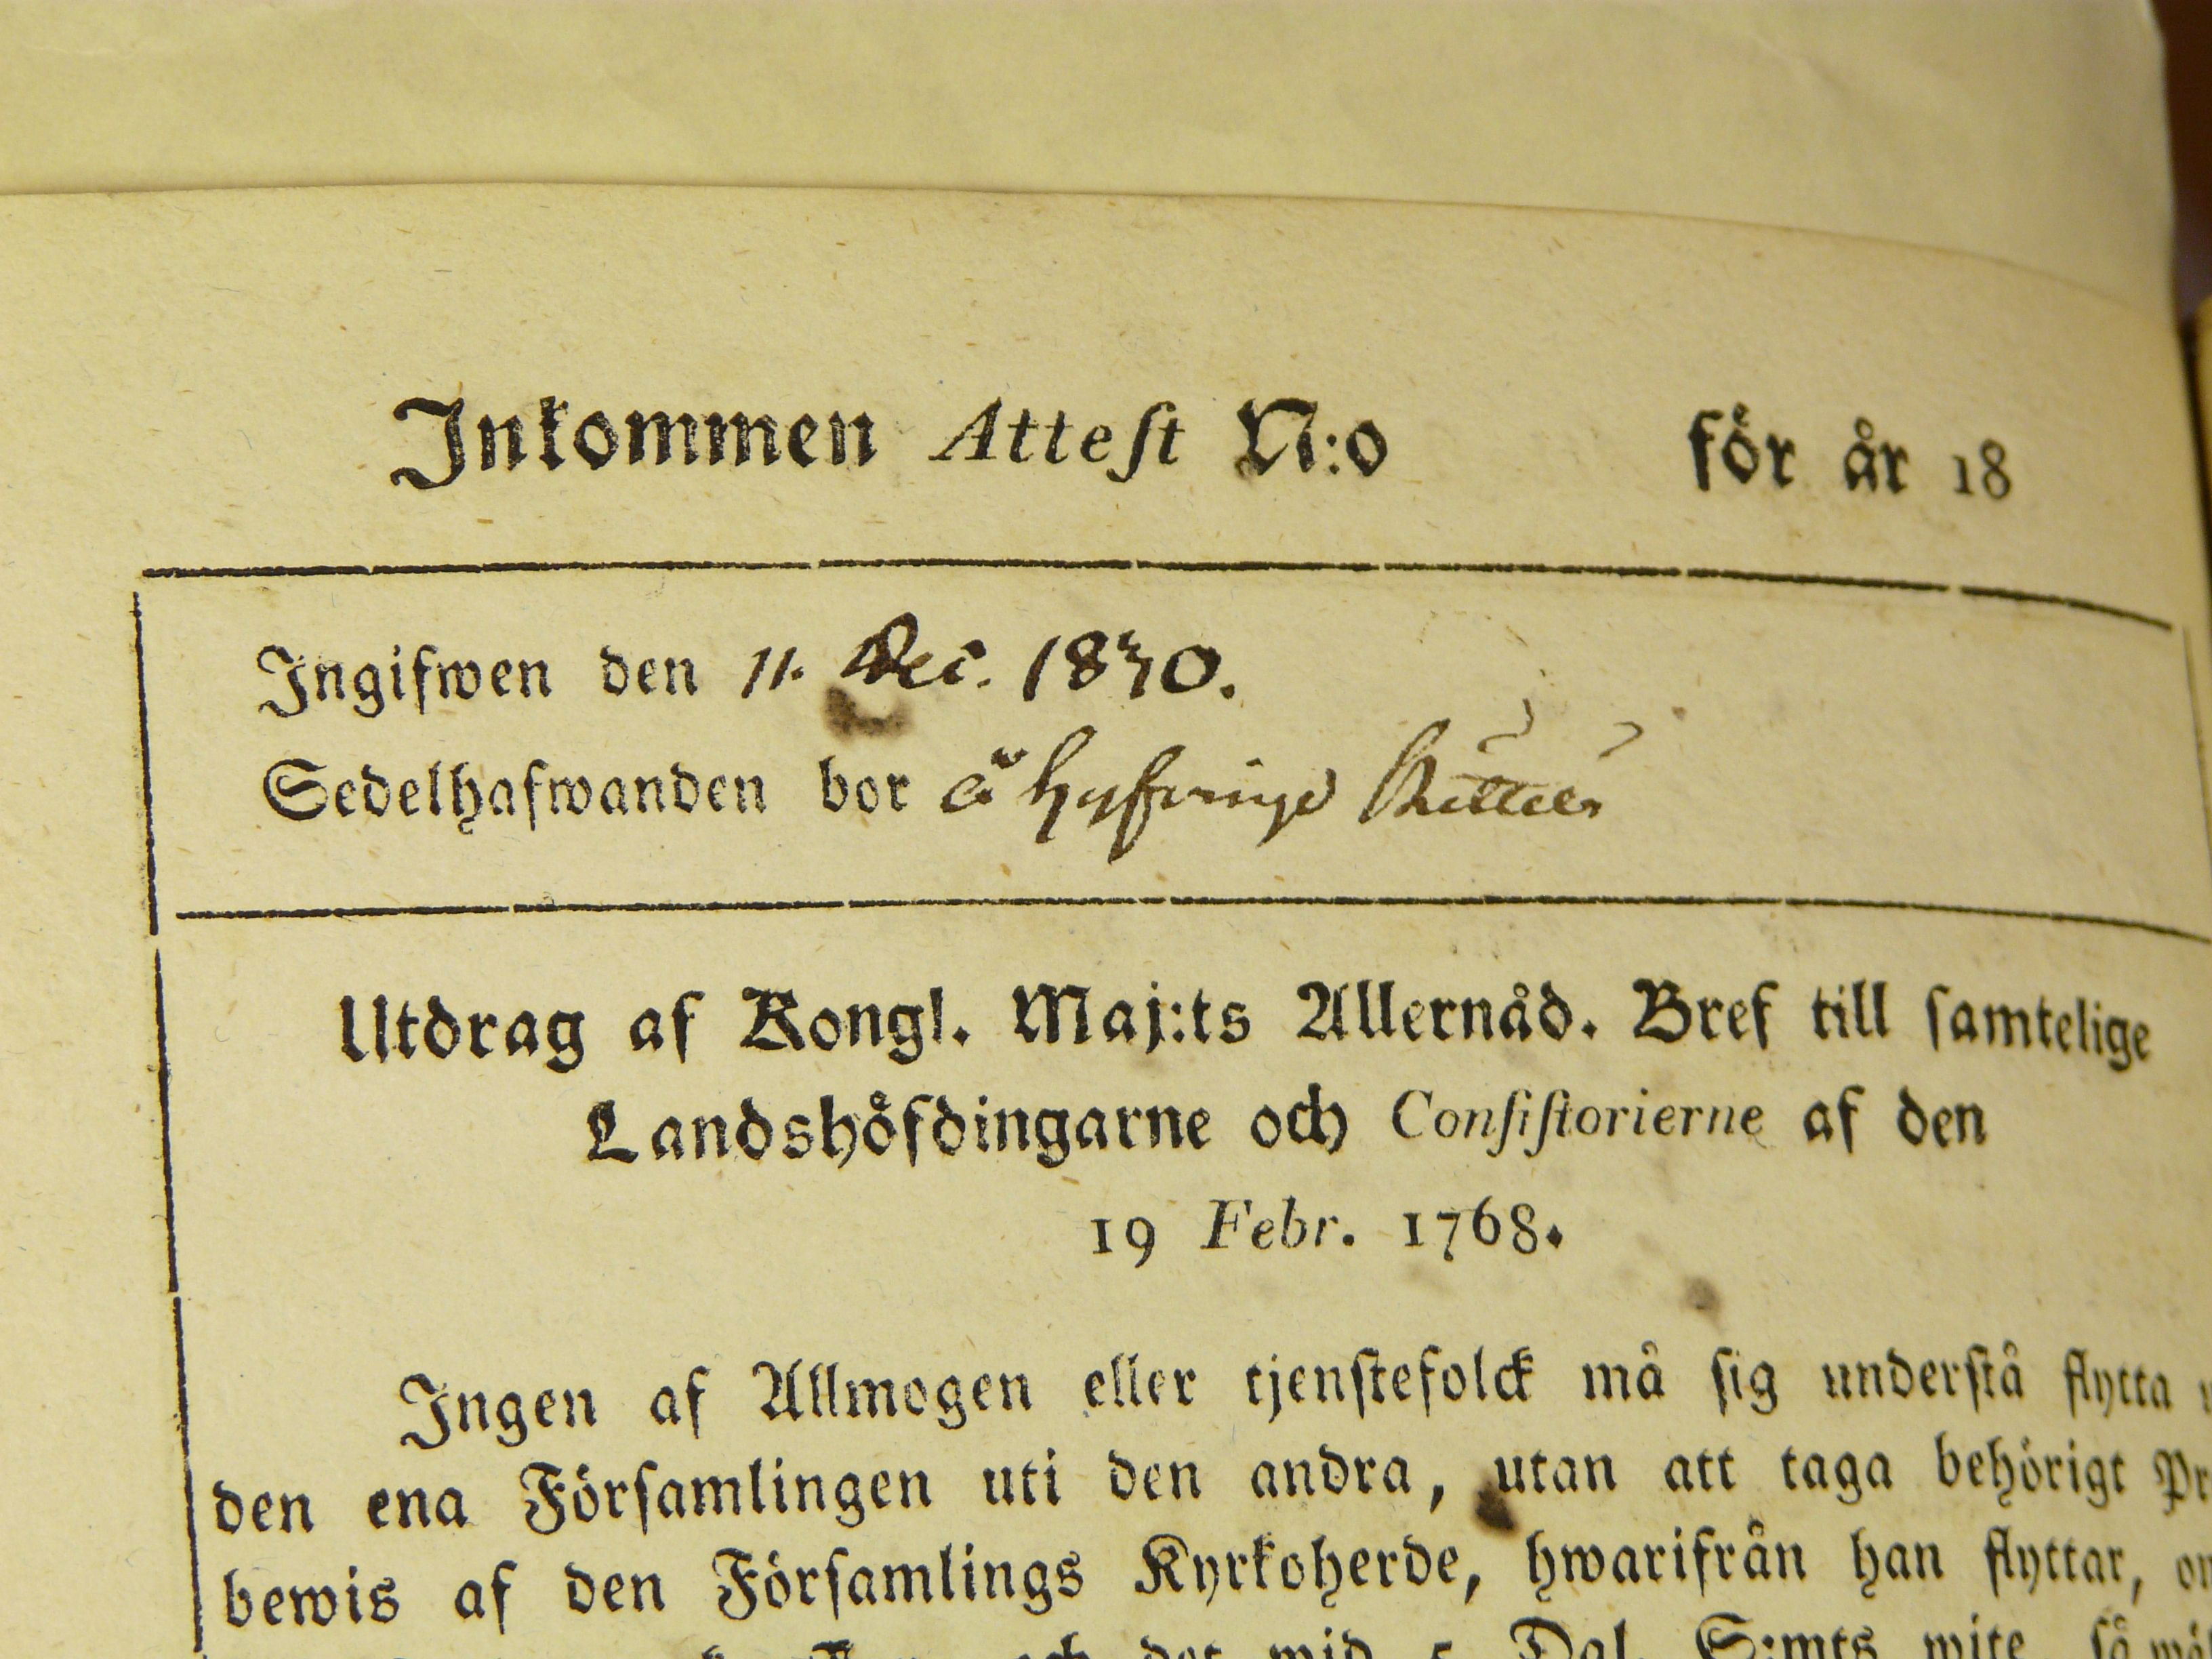 Inkommen Atteſt N:o för år 18
Ingifwen den 11. Dec. 1830.
Sedelhafwanden bor å
Utdrag af Kongl. Maj:ts Allernåd. Bref till ſamtelige
Landshöfdingarne och Conſiſtorierne af den
19 Febr. 1768.
Ingen af Allmogen eller tjenſtefolck må ſig underſtå flytta
den ena Förſamlingen uti den andra, utan att taga behörigt Pr
bewis af den Förſamlings Kyrkoherde, hwarifrån han flyttar,
det wid 5 Dal. S:mts wite, ſå